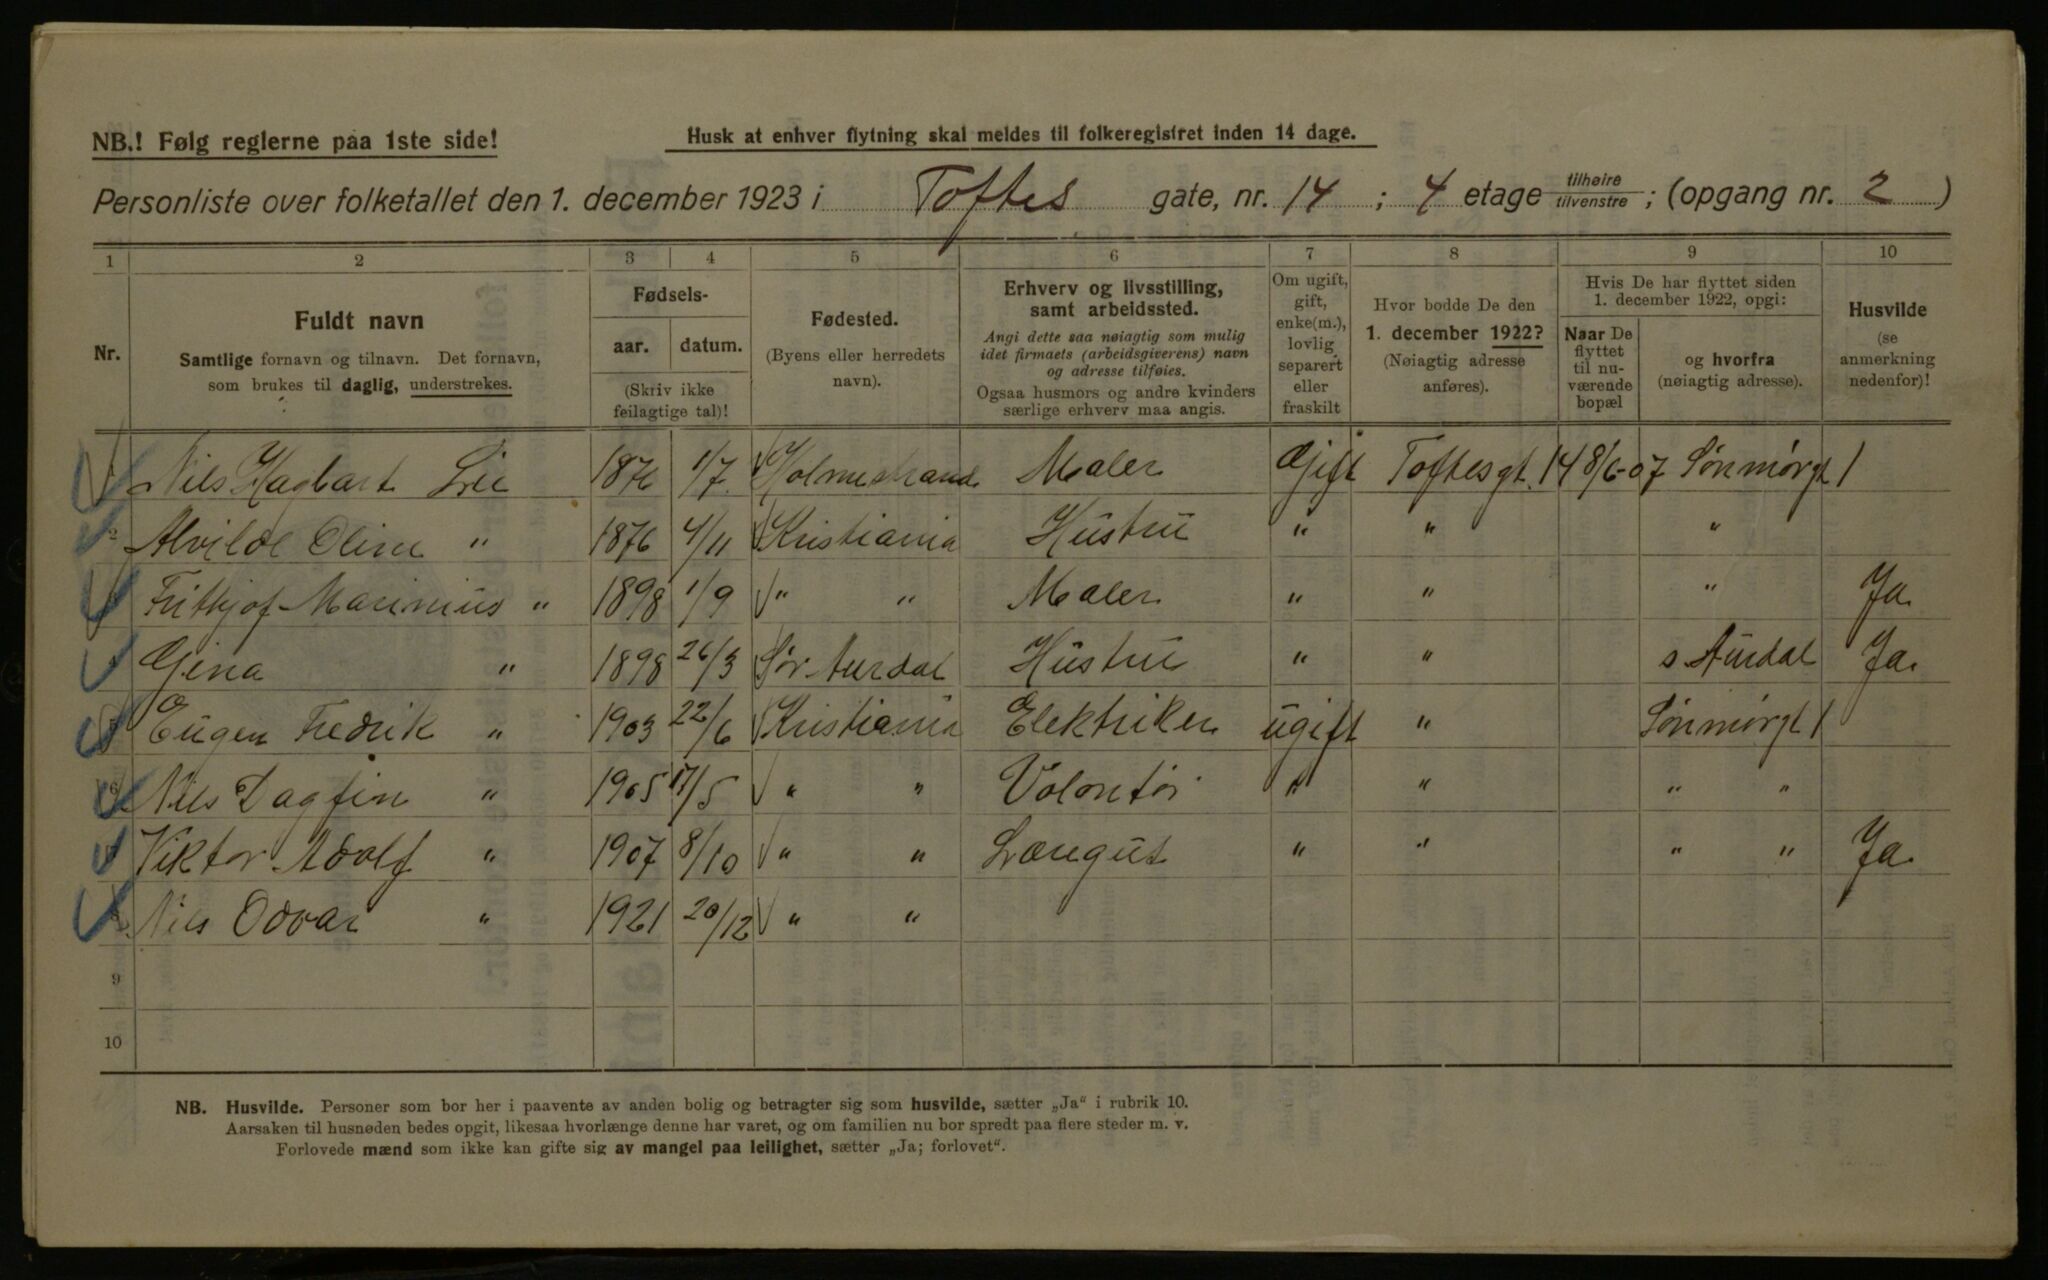 NB.! Følg reglerne paa 1ste side!
Husk at enhver flytning skal meldes til folkeregistret inden 14 dage.
Personliste over folketallet den 1. december 1923 i Toftes gate, nr. 14 ; 4 etage tilhøire tilvenstre ; (opgang nr. 2 )
1 2 3 4 5 6 7 8 9 10
Nr.
Fuldt navn
Samtlige fornavn og tilnavn. Det fornavn,
som brukes til daglig, understrekes.
Fødsels-
aar. datum.
(Skriv ikke
feilagtige tal)!
Fødested.
(Byens eller herredets
navn).
Erhverv og livsstilling,
samt arbeidssted.
Angi dette saa nøiagtig som mulig
idet firmaets (arbeidsgiverens) navn
og adresse tilføies.
Ogsaa husmors og andre kvinders
særlige erhverv maa angis.
Om ugift,
gift,
enke(m.),
lovlig
separert
eller
fraskilt
Hvor bodde De den
1. december 1922?
(Nøiagtig adresse
anføres).
Hvis De har flyttet siden
1. december 1922, opgi:
Naar De
flyttet
til nu-
værende
bopæl
og hvorfra
(nøiagtig adresse).
Husvilde
(se
anmerkning
nedenfor)!
Nils Hagbart Lie 1876 1/7 Holmestrand Maler Gift Toftesgt. 14 8/6-07 Sønmørgt 1
2 Alvilde Oline " 1876 4/11 Kristiania Hustru " " "
Frithjof Marinius " 1898 1/9 " " Maler " " " Ja
Gina " 1898 26/3 Sør Aurdal Hustru " " S Aurdal Ja.
5 Eugen Fredrik " 1903 22/6 Kristiania Elektriker ugift " Sønmørgt 1
6 Nils Dagfin " 1905 17/5 " " Volontør " " " "
Viktor Adolf " 1907 8/10 " " Læregut " " " " Ja.
Nils Odvar " 1921 20/12 " "
9
10
NB. Husvilde. Personer som bor her i paavente av anden bolig og betragter sig som husvilde, sætter „Ja“ i rubrik 10.
Aarsaken til husnøden bedes opgit, likesaa hvorlænge denne har varet, og om familien nu bor spredt paa flere steder m. v.
Forlovede mænd som ikke kan gifte sig av mangel paa leilighet, sætter „Ja; forlovet“.